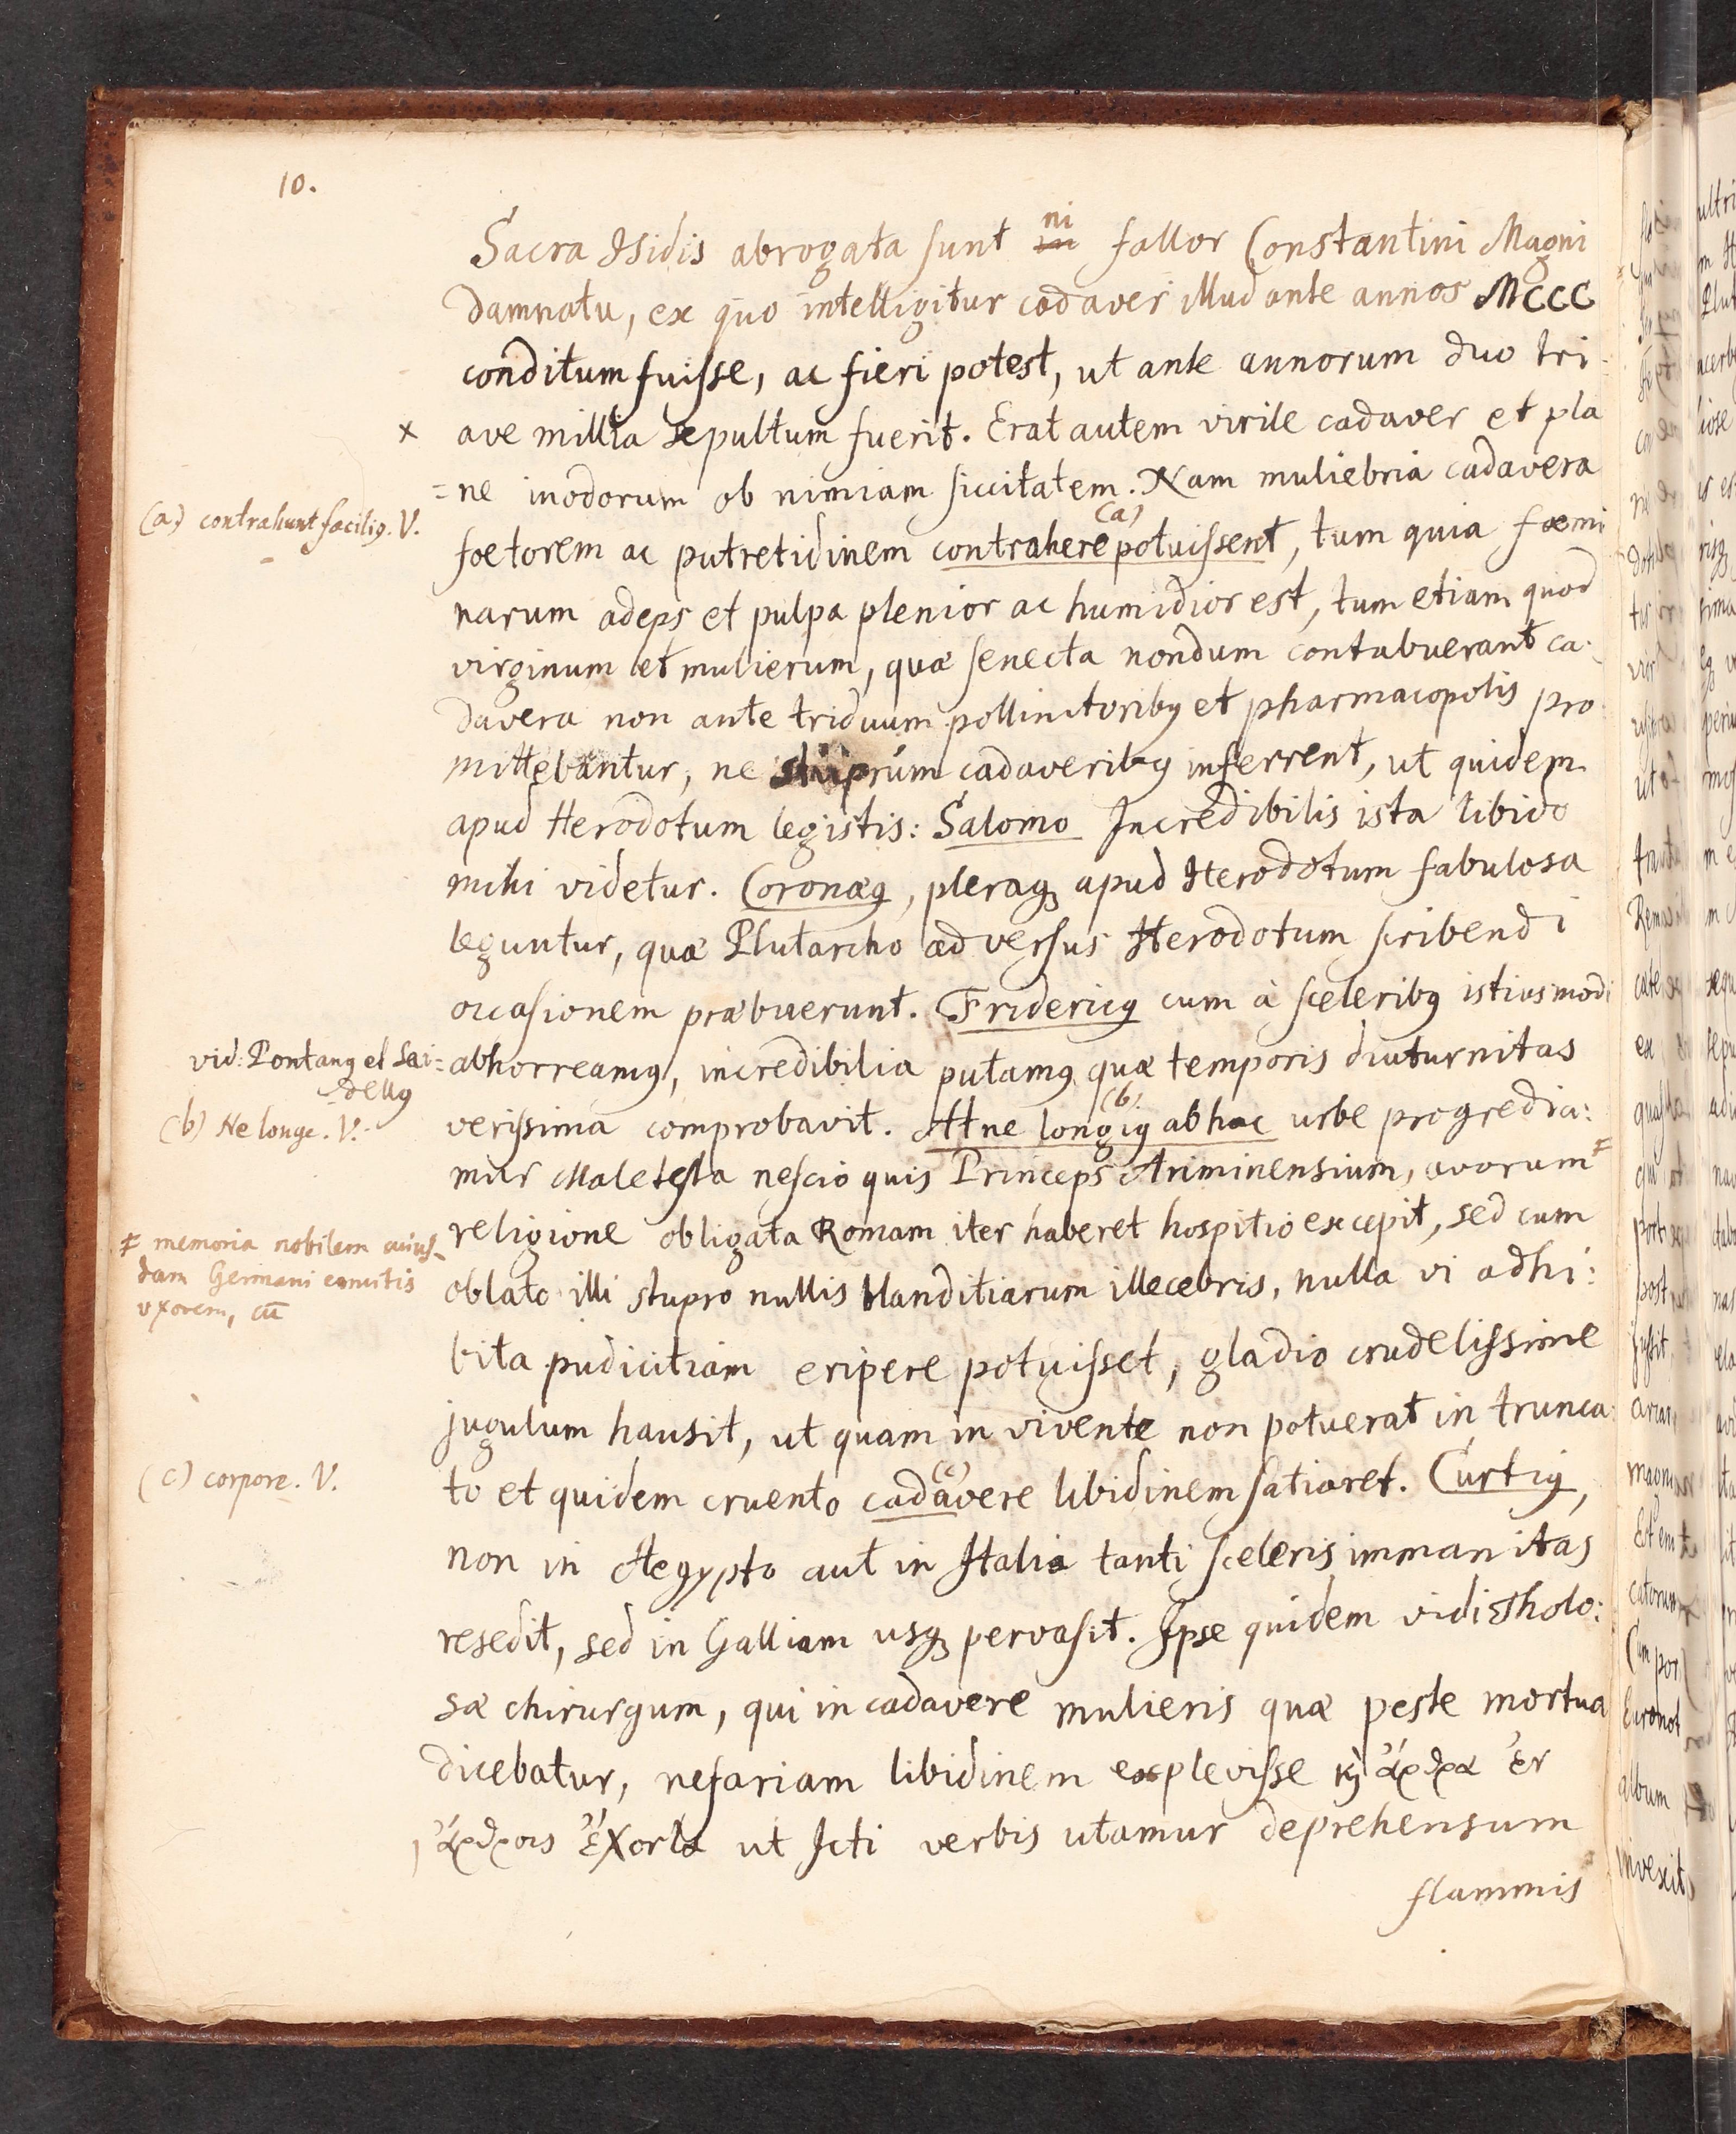 10.
Sacra Isidis abrogata sunt ni fallor Constantini Magni
damnatu, ex quo intelligitur cadaver illud ante annos MCCC
conditum fuisse, ac fieri potest, ut ante annorum duo tri
x ave millia sepultum fuerit. Erat autem virile cadaver et pla
=ne inodorum ob nimiam siccitatem. Nam muliebria cadavera
(a) contrahunt facilig. V.
foetorem ac putretidinem contrahere (a) potuissent, tum quia fœmi
narum adeps et pulpa plenior ac humidior est, tum etiam quod
virginum et mulierum, quæ senecta nondum contabuerant ca:
davera non ante triduum pollinctoribg et pharmacopolis pro
mittebantur, ne stuprum cadaveribg inferrent, ut quidem
apud Herodotum legistis: Salomo Incredibilis ista libido
mihi videtur. Coronæg, pleraq apud Herodotum fabulosa
leguntur, quæ Plutarcho adversus Herodotum scribendi
occasionem præbuerunt. Fridericg cum à sceleribg istiusmodi
vid: Pontang el Sar=
dellg
abhorreamg, incredibilia putamg quæ temporis diuturnitas
(b) Ne longe. V.
verissima comprobavit. At ne longig (b) ab hac urbe progredia:
mur Maletesta nescio quis Princeps Ariminensium, avorum ⨎
⨎ memoria nobilem cuius_
dam Germani comitis
uxorem, cū
religione obligata Romam iter haberet hospitio excepit, sed cum
oblato illi stupro nullis blanditiarum illecebris, nulla vi adhi:
bita pudicitiam eripere potuisset, gladio crudelissime
jugulum hausit, ut quam in vivente non potuerat in trunca
(c) corpore. V.
to et quidem cruento cadavere (c) libidinem satiaret. Curtig,
non in Aegypto aut in Italia tanti sceleris immanitas
resedit, sed in Galliam usq pervasit. Ipse quidem vidi Tholo:
sæ chirurgum, qui in cadavere mulieris quæ peste mortua
dicebatur, nefariam libidinem explevisse ϗ ἄρθρα ἐν
ἄρθροις ἔχοντα ut Jcti verbis utamur deprehensum
flammis